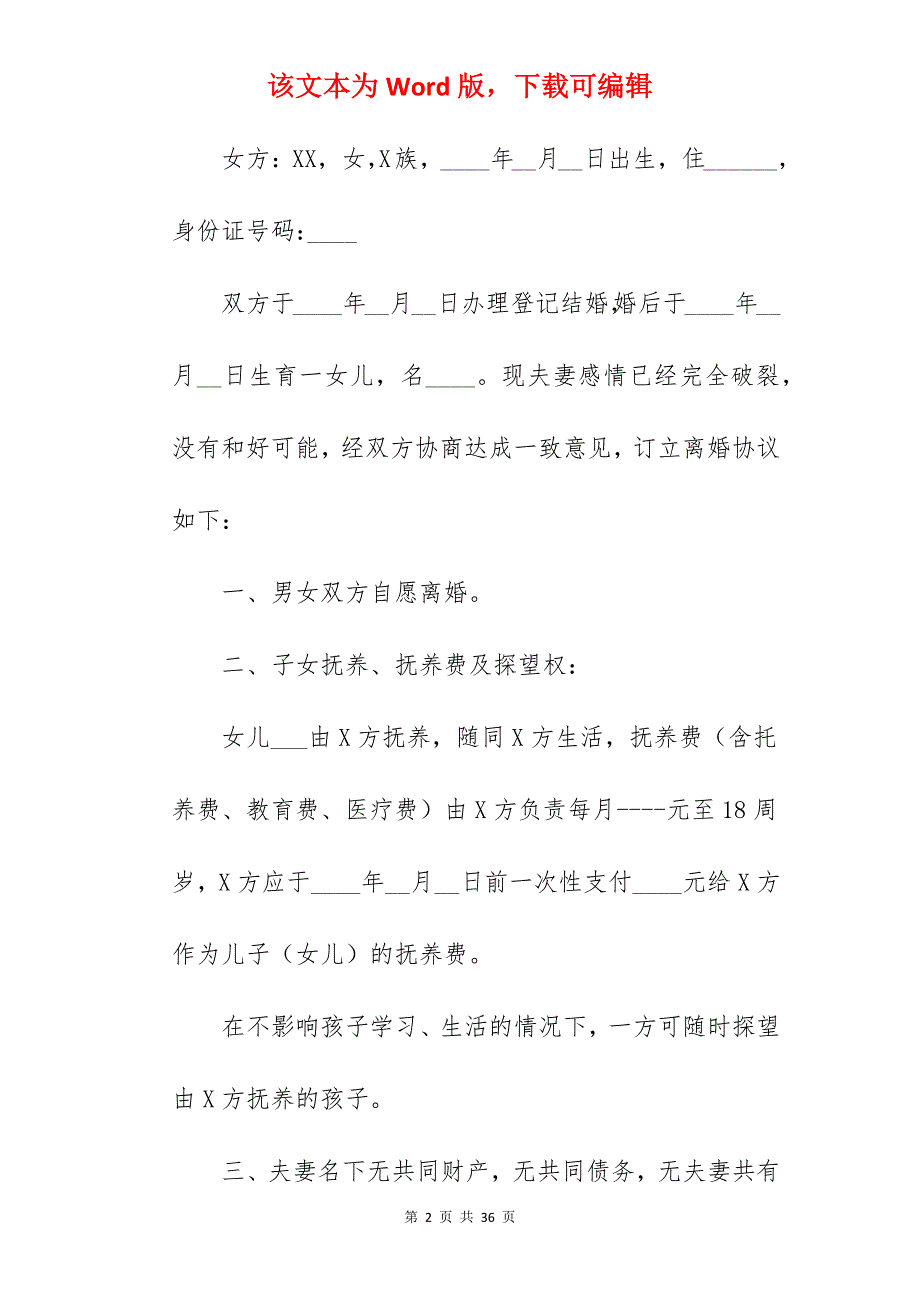 该文本为 Word 版，下载可编辑
女方：XX，女,X族，____年__月__日出生，住______，
身份证号码:____
双方于____年__月__日办理登记结婚,婚后于____年__
月__日生育一女儿，名____。现夫妻感情已经完全破裂，
没有和好可能，经双方协商达成一致意见，订立离婚协议
如下：
一、男女双方自愿离婚。
二、子女抚养、抚养费及探望权：
女儿___由X方抚养，随同X方生活，抚养费（含托
养费、教育费、医疗费）由X方负责每月----元至18周
岁，X方应于____年__月__日前一次性支付____元给X方
作为儿子（女儿）的抚养费。
在不影响孩子学习、生活的情况下，一方可随时探望
由X方抚养的孩子。
三、夫妻名下无共同财产，无共同债务，无夫妻共有
第 2 页 共 36 页